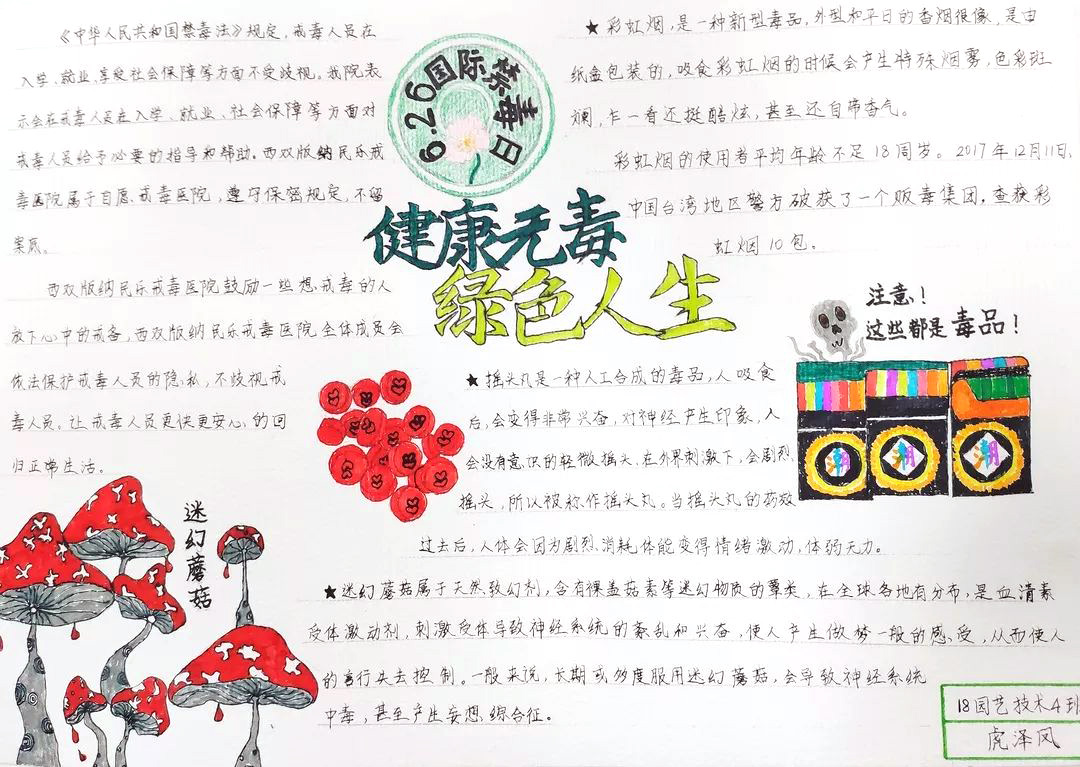 《中华人民共和国禁毒法》规定,戒毒人员在
入学、就业、享受社会保障等方面不受歧视。我院表
示会在戒毒人员在入学、就业、社会保障等方面对
戒毒人员给予必要的指导和帮助。西双版纳民乐戒
毒医院属于自愿戒毒医院,遵守保密规定,不留
案底。
西双版纳民乐戒毒医院鼓励一些想戒毒的人
放下心中的戒备,西双版纳民乐戒毒医院全体成员会
依法保护戒毒人员的隐私,不歧视戒
毒人员。让戒毒人员更快更安心的回
归正常生活。
6.26国际禁毒日
健康无毒
绿色人生
★彩虹烟,是一种新型毒品,外型和平日的香烟很像,是由
纸盒包装的,吸食彩虹烟的时候会产生特殊烟雾,色彩斑
斓,乍一看还挺酷炫,甚至还自带香气。
彩虹烟的使用者平均年龄不足18周岁。2017年12月11日,
中国台湾地区警方破获了一个贩毒集团,查获彩
虹烟10包。
注意!
这些都是毒品!
潮
潮
潮
★摇头丸是一种人工合成的毒品,人吸食
后,会变得非常兴奋,对神经产生印象,人
会没有意识的轻微摇头,在外界刺激下,会剧烈
摇头,所以被称作摇头丸。当摇头丸的药效
过去后,人体会因为剧烈消耗体能变得情绪激动,体弱无力。
迷幻蘑菇
★迷幻蘑菇属于天然致幻剂,含有裸盖菇素等迷幻物质的蕈类,在全球各地有分布,是血清素
受体激动剂,刺激受体导致神经系统的紊乱和兴奋,使人产生做梦一般的感受,从而使人
的言行失去控制。一般来说,长期或多度服用迷幻蘑菇,会导致神经系统
中毒,甚至产生妄想综合征。
18园艺技术4班
虎泽凤